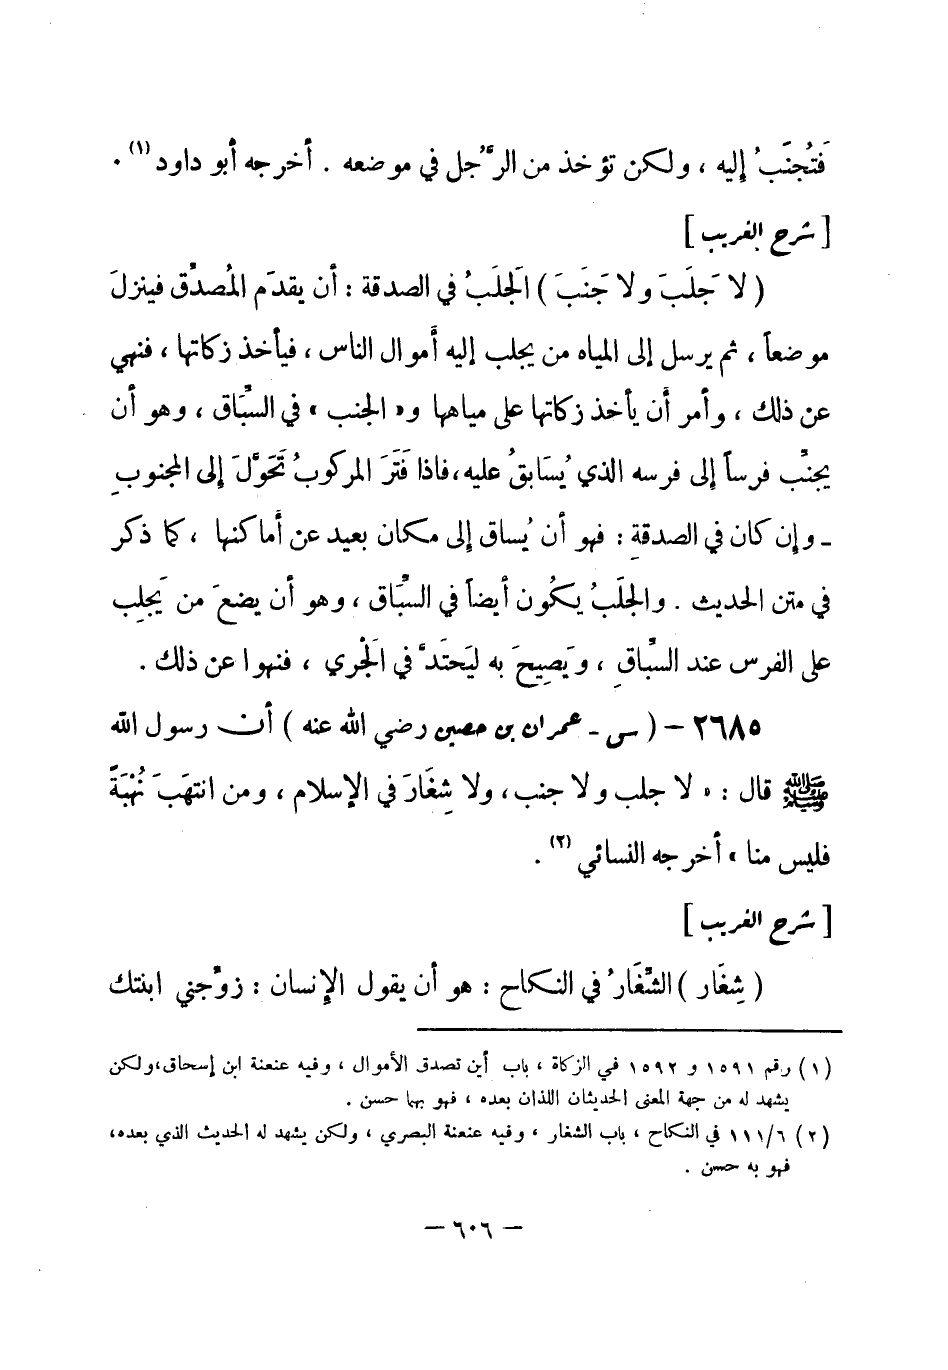 فَتُجنَبُ إليه ، ولكن تؤخذ من الرَّجل في موضعه . أخرجه أبو داود (١) .
[ شرح الغريب ]
( لا جَلَبَ ولا جَنَبَ ) الجَلَبُ في الصدقة : أن يقدَم المُصدِّق فينزلَ
موضعاً ، ثم يرسل إلى المياه من يجلب إليه أموال الناس ، فيأخذ زكاتها ، فنهي
عن ذلك ، وأمر أن يأخذ زكاتها على مياهها و« الجنب » في السِّباق ، وهو أن
يجنُب فرساً إلى فرسه الذي يُسَابقُ عليه،فاذا فَتَرَ المركوبُ تَحَوَّلَ إلى المجنوبِ
ـ وإن كان في الصدقةِ : فهو أن يُساق إلى مكان بعيد عن أماكنها ، كما ذكر
في متن الحديث . والجلَبُ يكون أيضاً في السِّباق ، وهو أن يضعَ من يَجلِب
على الفرس عند السِّباقِ ، ويَصِيحَ به ليَحتَدَّ في الجَرْي ، فنهوا عن ذلك .
٢٦٨٥ - ( س - عمران بن حصين رضي الله عنه ) أن رسول الله
ﷺ قال : « لا جلب ولا جنب ، ولا شِغَارَ في الإسلام ، ومن انتهَبَ نُهْبَةً
فليس منا » أخرجه النسائي (٢) .
[ شرح الغريب ]
( شِغَار ) الشِّغَارُ في النكاح : هو أن يقول الإنسان : زوِّجني ابنتك
(١) رقم ١٥٩١ و ١٥٩٢ في الزكاة ، باب أين تصدق الأموال ، وفيه عنعنة ابن إسحاق،ولكن
يشهد له من جهة المعنى الحديثان اللذان بعده ، فهو بهما حسن .
(٢) ١١١/٦ في النكاح ، باب الشغار ، وفيه عنعنة البصري ، ولكن يشهد له الحديث الذي بعده،
فهو به حسن .
— ٦٠٦ —